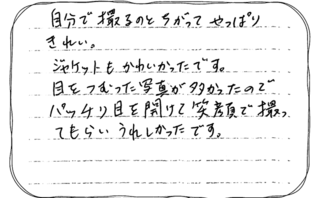 自分で撮るのとちがって やっぱり
きれい。
ジャケットも かわいかったです。
目をつむった写真が多かったので
パッチリ目を開けて笑顔で撮っ
てもらい うれしかったです。